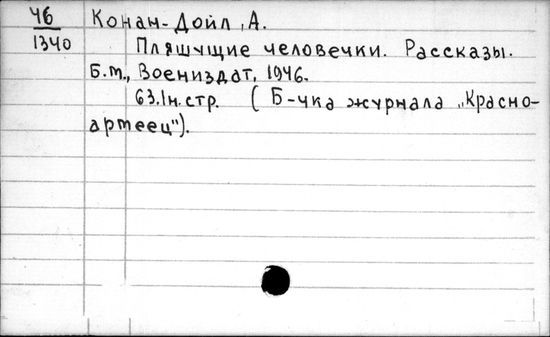 46
1340
Конан-Дойл, А.
Пляшущие человечки. Рассказы.
Б.м., Воениздат, 1946.
63.1н.стр. (Б-чка журнала „Красно-
армеец").